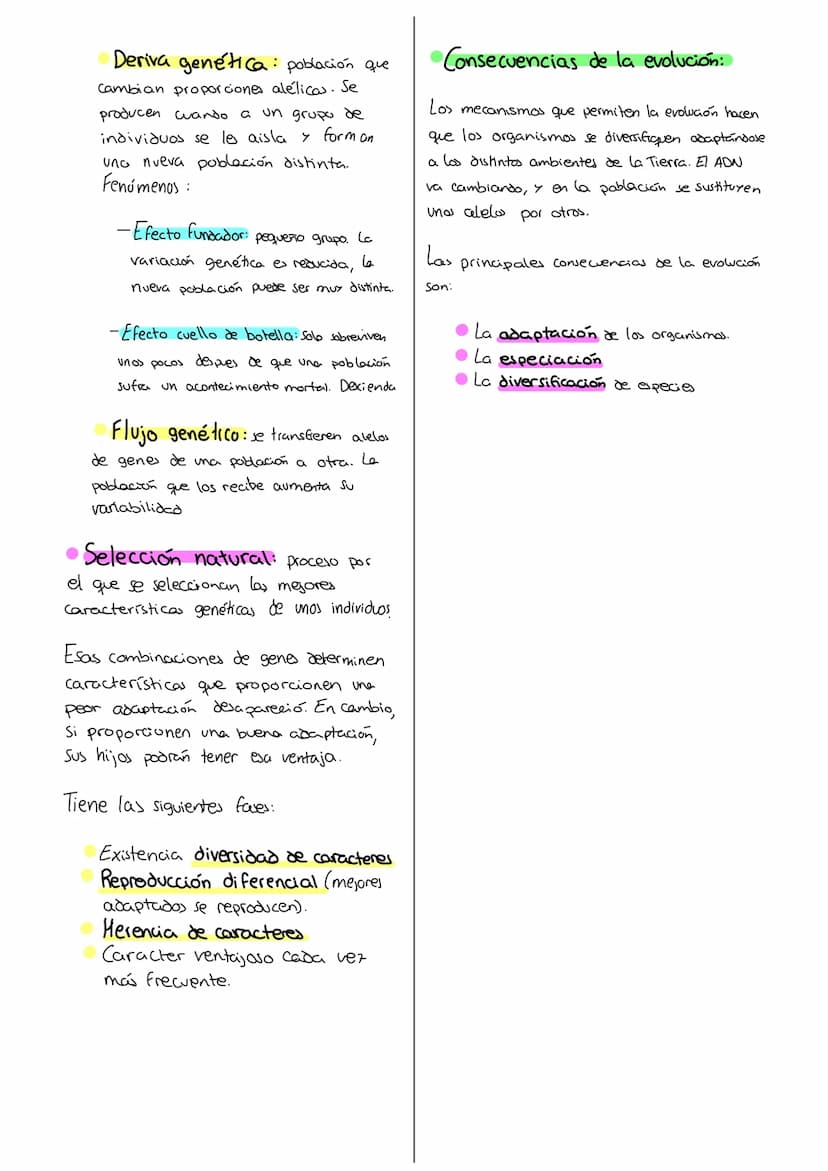 Deriva genética: población que
cambian proporciones alélicas. Se
producen cuando a un grupo de
individuos se les aisla y forman
una nueva población distinta.
Fenómenos:
- Efecto fundador: pequeño grupo. La
variación genética es reducida, la
nueva población puede ser muy distinta.
- Efecto cuello de botella: Solo sobreviven
unos pocos despes de que una población
sufra un acontecimiento mortal. Decienda
Flujo genético: se transfieren alelos
de genes de una población a otra. La
población que los recibe aumenta su
variabilidad
Selección natural: proceso por
el que se seleccionan las mejores
características genéticas de unos individuos.
Esas combinaciones de genes determinen
características que proporcionen una
peor adaptación desapareció. En cambio,
Si proporcionen una buena adaptación,
Sus hijos podrán tener esa ventaja.
Tiene las siguientes fases:
Existencia diversidad de caracteres
Reproducción diferencial (mejores
adaptados se reproducen).
Herencia de caracteres
Caracter ventajoso cada vez
más frecuente.
Consecuencias de la evolución:
Los mecanismos que permiten la evolución hacen
que los organismos se diversifiquen adaptándose
a los distintos ambientes de la Tierra. El ADN
va cambiando, y en la población se sustituyen
unos alelos por otros.
Las principales consecuencias de la evolución
son:
La adaptación de los organismos.
La especiación
La diversificación de especies